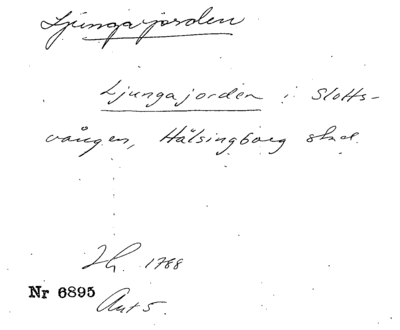 Ljungajorden
Ljungajorden i Slotts-
vången, Hälsingborg stad.
1788
Nr 6895
Akt 5.